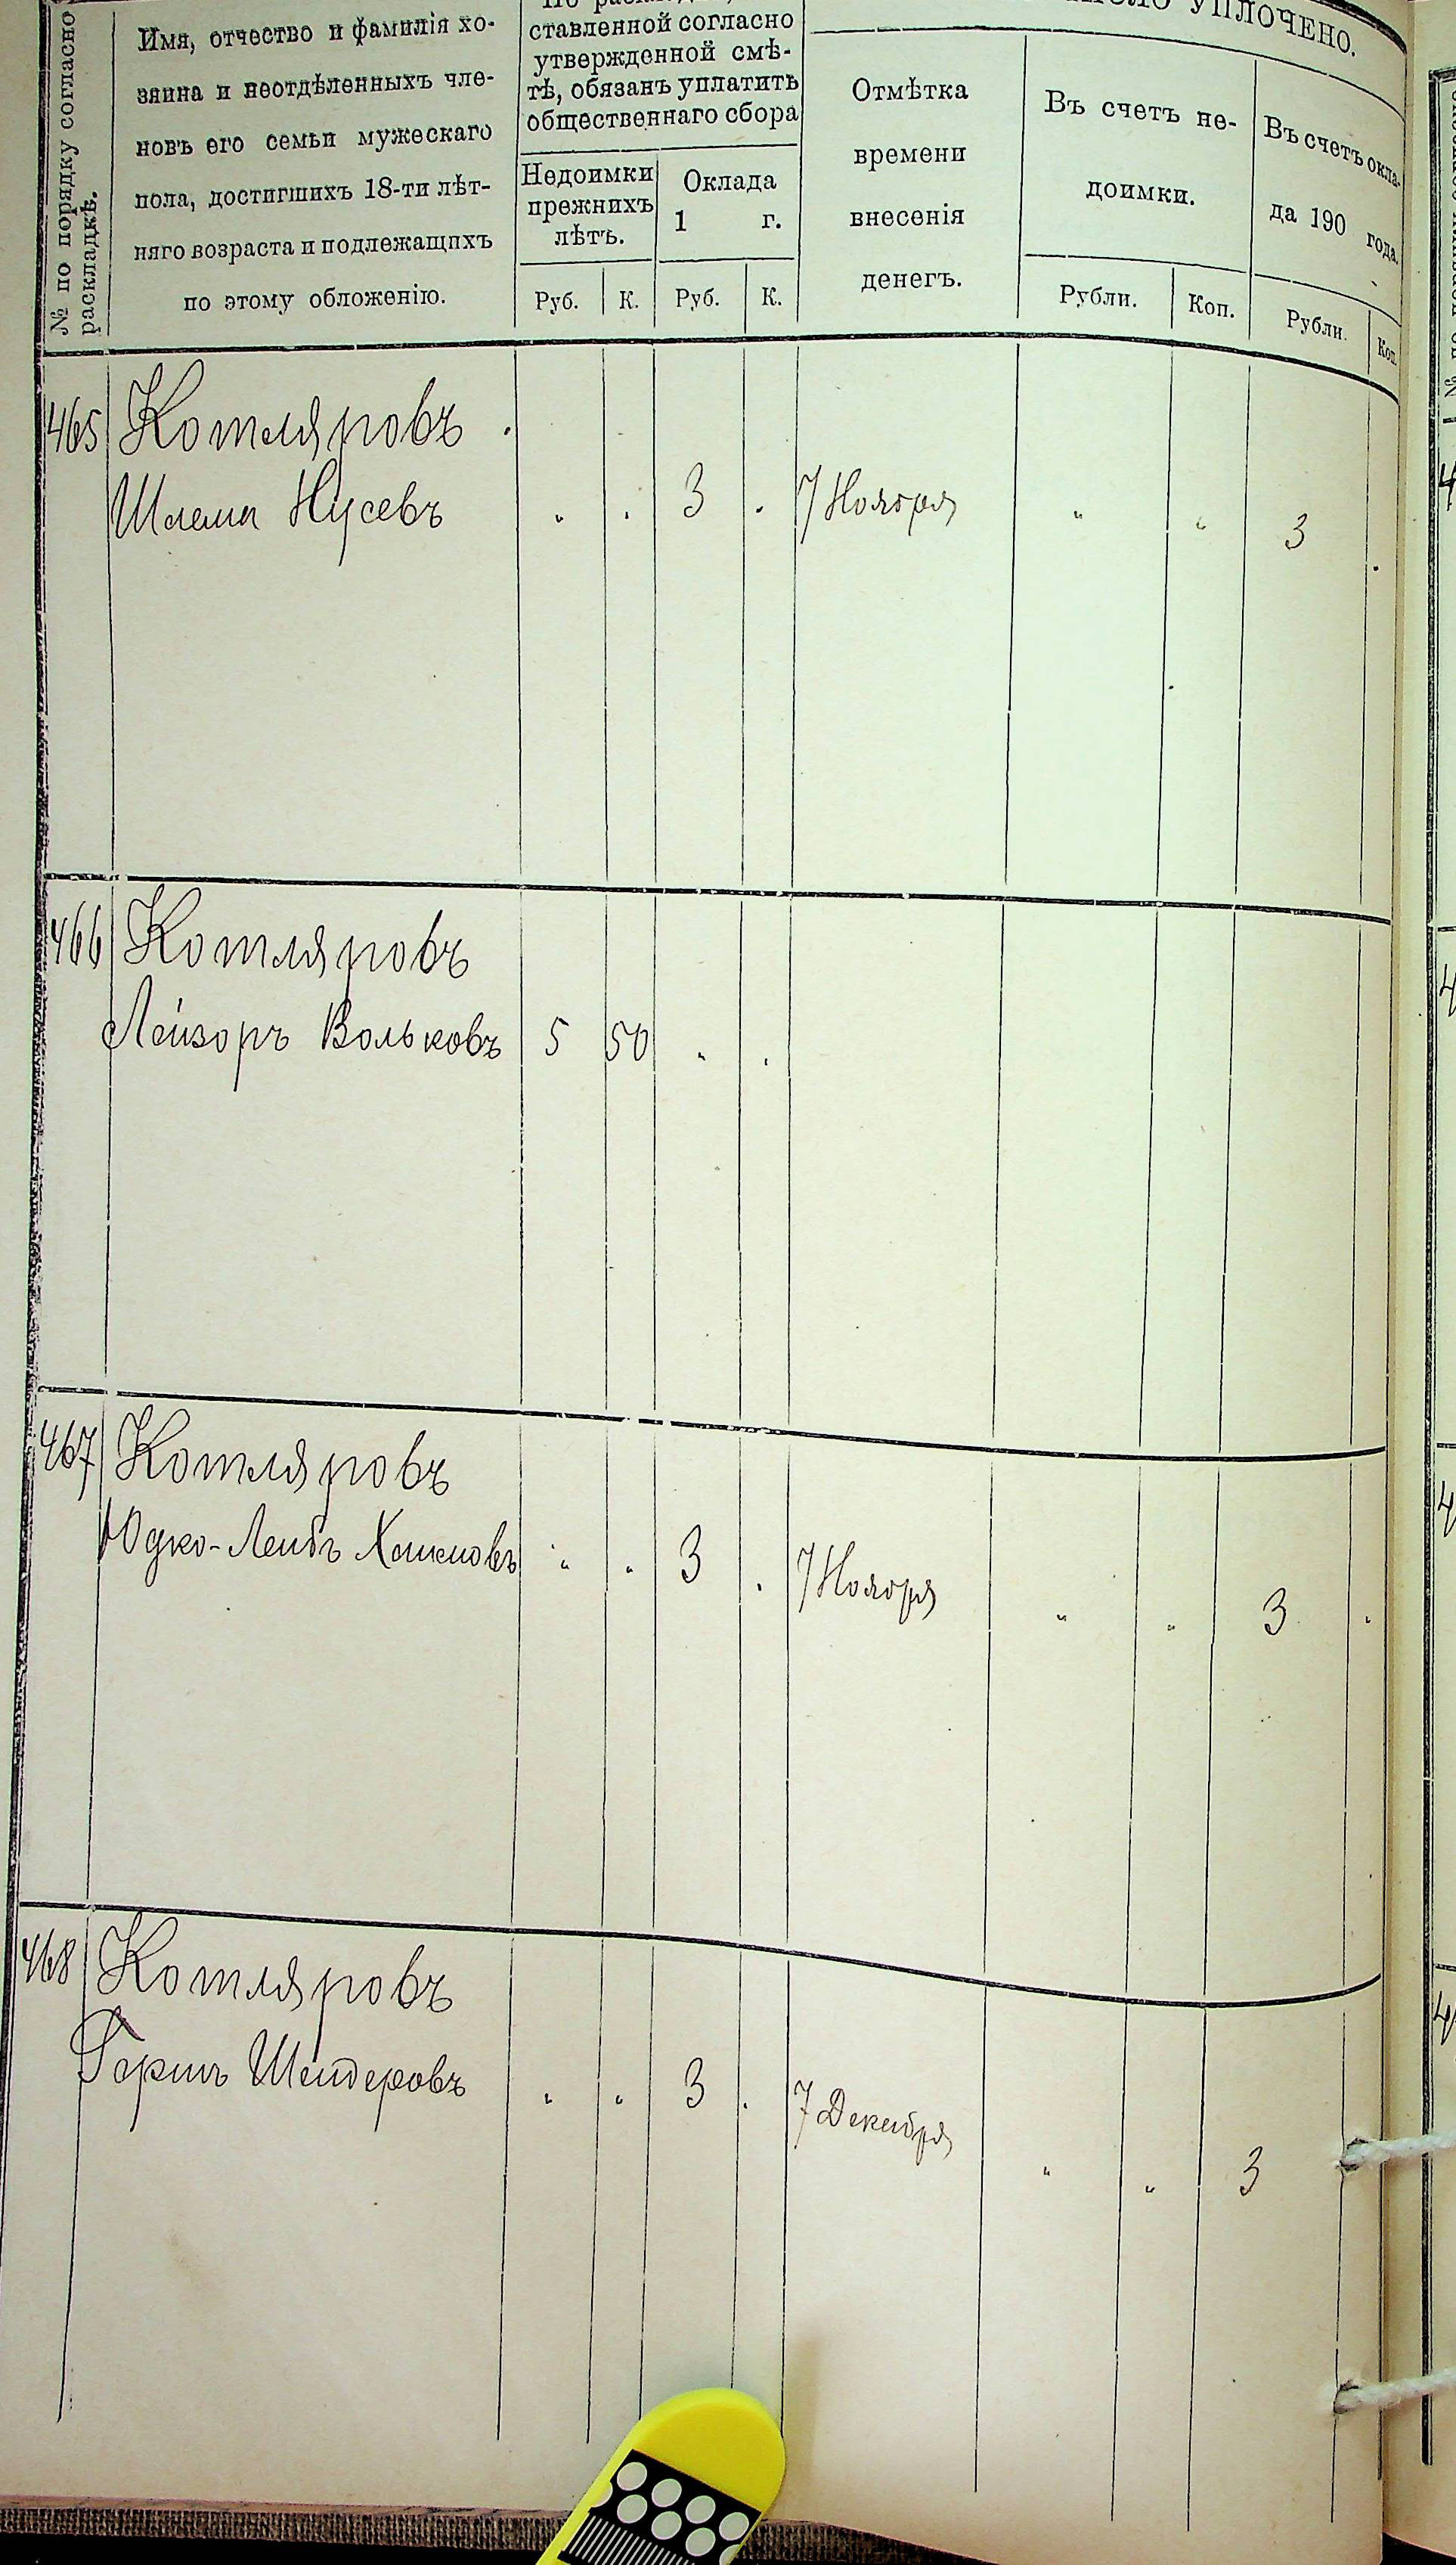 № по порядку согласно
раскладкѣ.
Имя, отчество и фамилія хо-
зяина и неотдѣленныхъ чле-
новъ его семьи мужескаго
пола, достигшихъ 18-ти лѣт-
няго возраста и подлежащихъ
по этому обложенію.
ставленной согласно
утвержденной смѣ-
тѣ, обязанъ уплатить
общественнаго сбора
Недоимки
прежнихъ
лѣтъ.
Оклада
1 г.
Руб. К. Руб. К.
УПЛОЧЕНО.
Отмѣтка
времени
внесенія
денегъ.
Въ счетъ не-
доимки.
Рубли. Коп.
Въ счетъ окла-
да 190 года.
Рубли. Коп.
465 Котляровъ
Шлема Нусевъ " . 3 . 7 Ноября " " 3 .
466 Котляровъ
Лейзоръ Вольковъ 5 50 " .
467 Котляровъ
Юдко-Лейбъ Хаимовъ " " 3 . 7 Ноября " " 3 .
468 Котляровъ
Гершъ Шендеровъ " " 3 . 7 Декабря " " 3